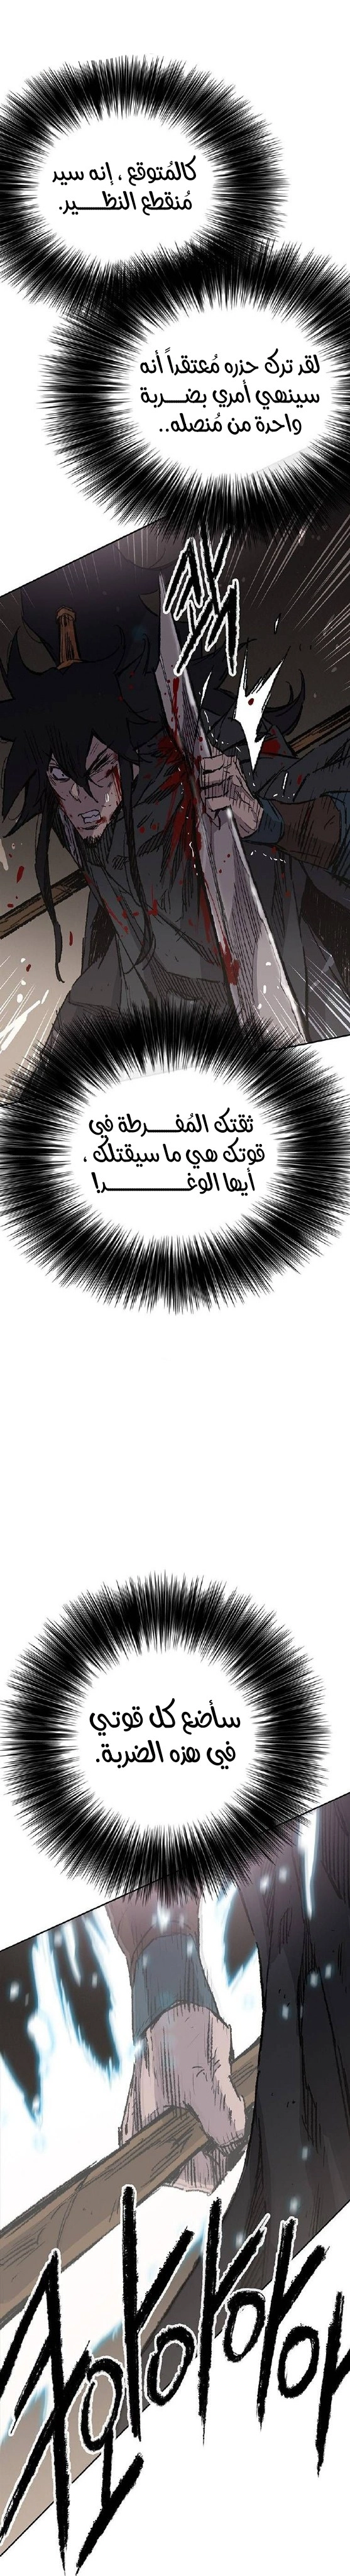 كالمُتوقع ، إنه سيد
مُنقطع النظـــير.
لقد ترك حذره مُعتقداً أنه
سينهي أمري بضـــربة
واحدة من مُنصله..
ثقتك المُفـــرطة في
قوتك هي ما سيقتلك ،
أيها الوغـــــــــد!
سأضع كل قوتي
في هذه الضربة.